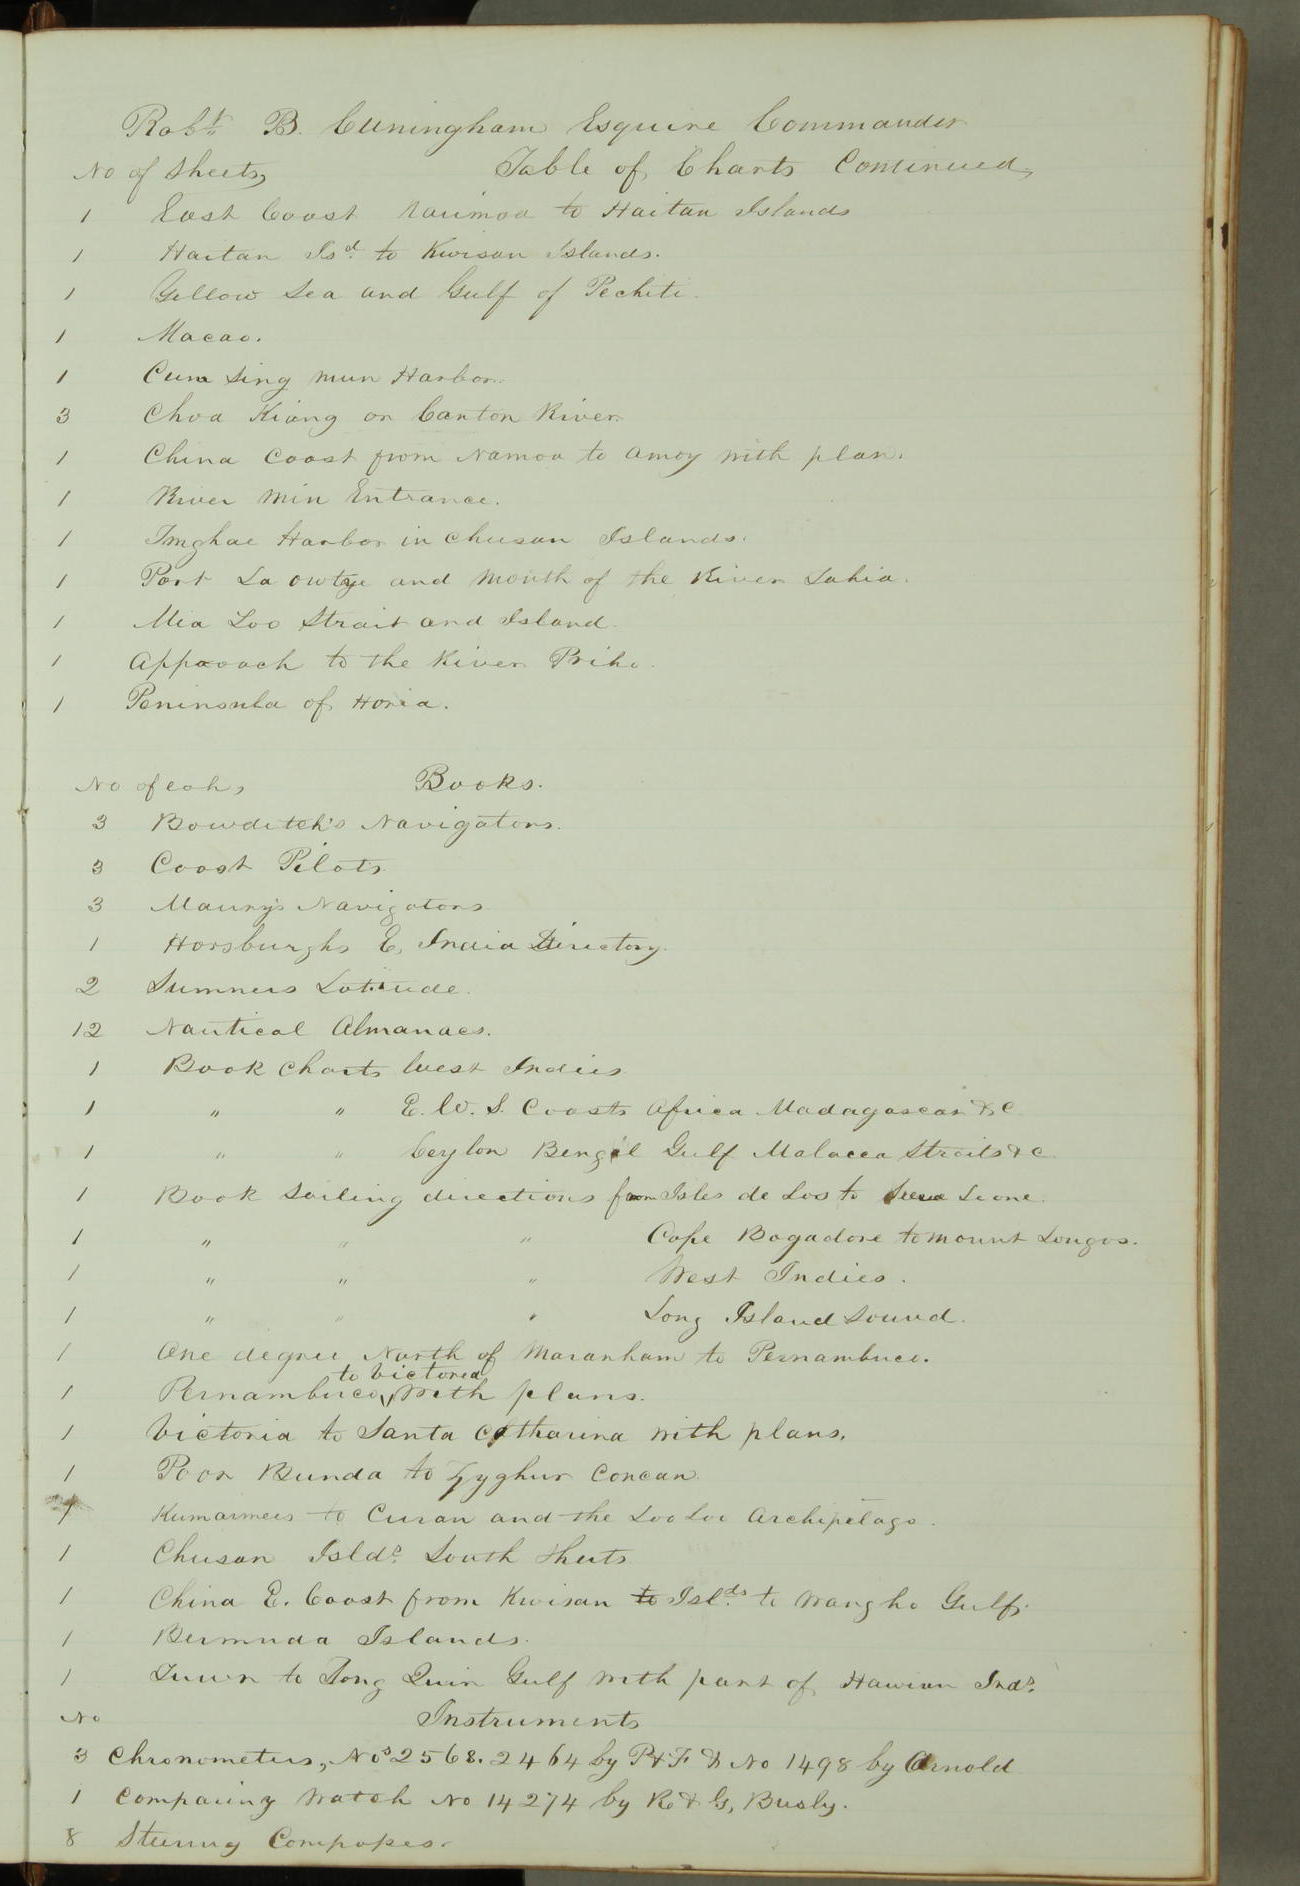 Robt. B. Cuningham Esquire Commander
No of Sheets, Table of Charts Continued,
1 East Coast Naimoa to Haitan Islands
1 Haitan Isd. to Kwisan Islands.
1 Yellow Sea and Gulf of Pechiti.
1 Macao.
1 Cum Sing mun Harbor.
3 Choa Kiang or Canton River.
1 China Coast from Namoa to Amoy with plan.
1 River Min Entrance.
1 Tmghae Harbor in Chusan Islands.
1 Port La owtye and Mouth of the River Lahia.
1 Mia Too Strait and Island.
1 Approach to the River Priho.
1 Peninsula of Horia.
No of eah, Books.
3 Bowditch's Navigators.
3 Coast Pilots
3 Maury's Navigators
1 Horsburghs E. India Directory.
2 Sumners Latitude.
12 Nautical Almanacs.
1 Book Charts West Indies
1 " " E. W. S. Coasts Africa Madagascar &C
1 " " Ceylon Bengal Gulf Malacca Straits &C
1 Book Sailing directions from Isles de Los to Leone.
1 " " " Cape Bogadore to mount Longos.
1 " " " West Indies.
1 " " " Long Island Sound.
1 One degree North of Maranham to Pernambuco.
1 Pernambuco to Victoria with plans.
1 Victoria to Santa Catharina with plans.
1 Poor Bunda to Zyghur Concan.
1 Kumarmees to Cusan and the Loo Loo Archipelago.
1 Chusan Islds. South Sheets
1 China E. Coast from Kwisan to Islds. to Wangho Gulf.
1 Bermuda Islands.
1 to Tong Quin Gulf with part of Hawian Inds.
No Instruments
3 Chronometers, Nos 2568. 2464 by P & F. & No 1498 by Arnold
1 Comparing Watch No 14274 by R & G, Busly.
8 Steering Compasses.